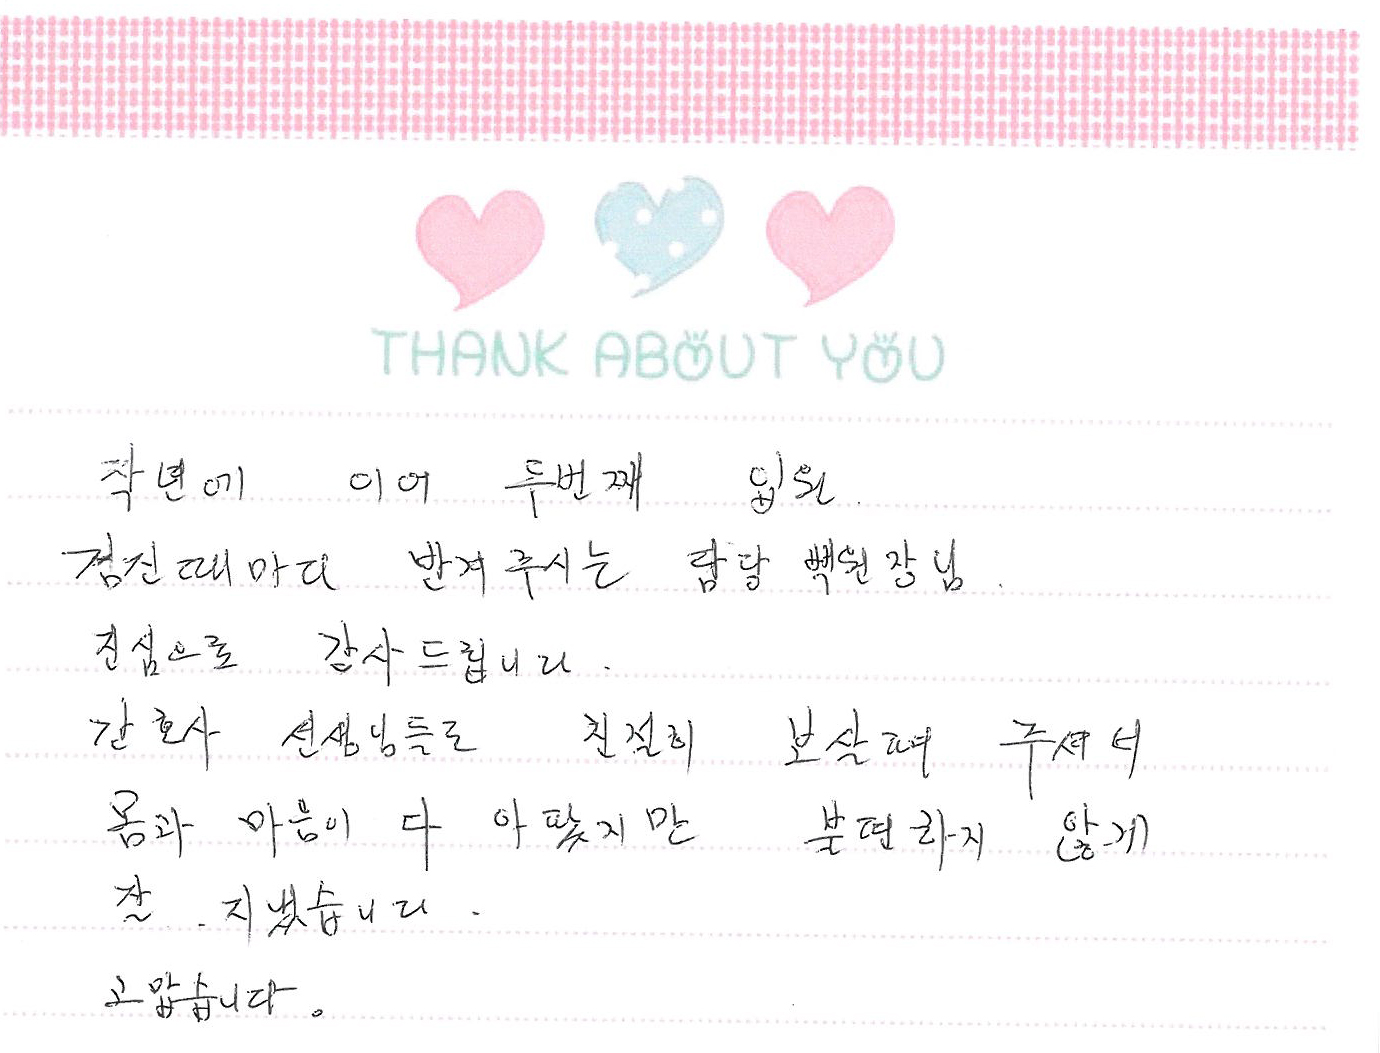 THANK ABOUT YOU
작년에 이어 두번째 입원.
검진때마다 반겨주시는 담당 백원장님.
진심으로 감사드립니다.
간호사 선생님들도 친절히 보살펴 주셔서
몸과 마음이 다 아팠지만 불편하지 않게
잘 지냈습니다.
고맙습니다.